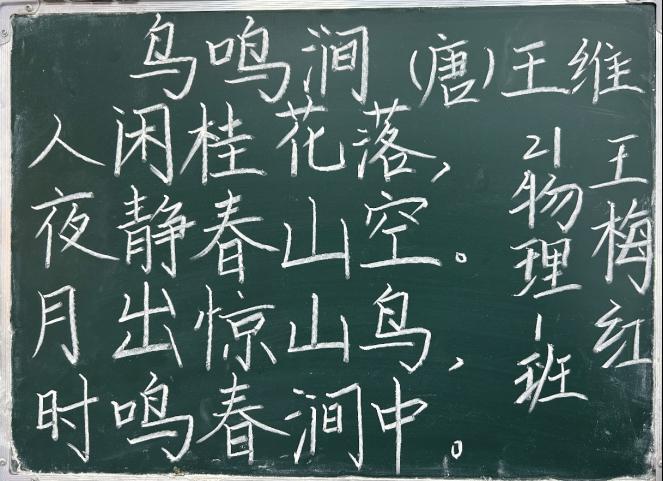 鸟鸣涧 (唐)王维
人闲桂花落，
夜静春山空。
月出惊山鸟，
时鸣春涧中。
21物理1班
王梅红